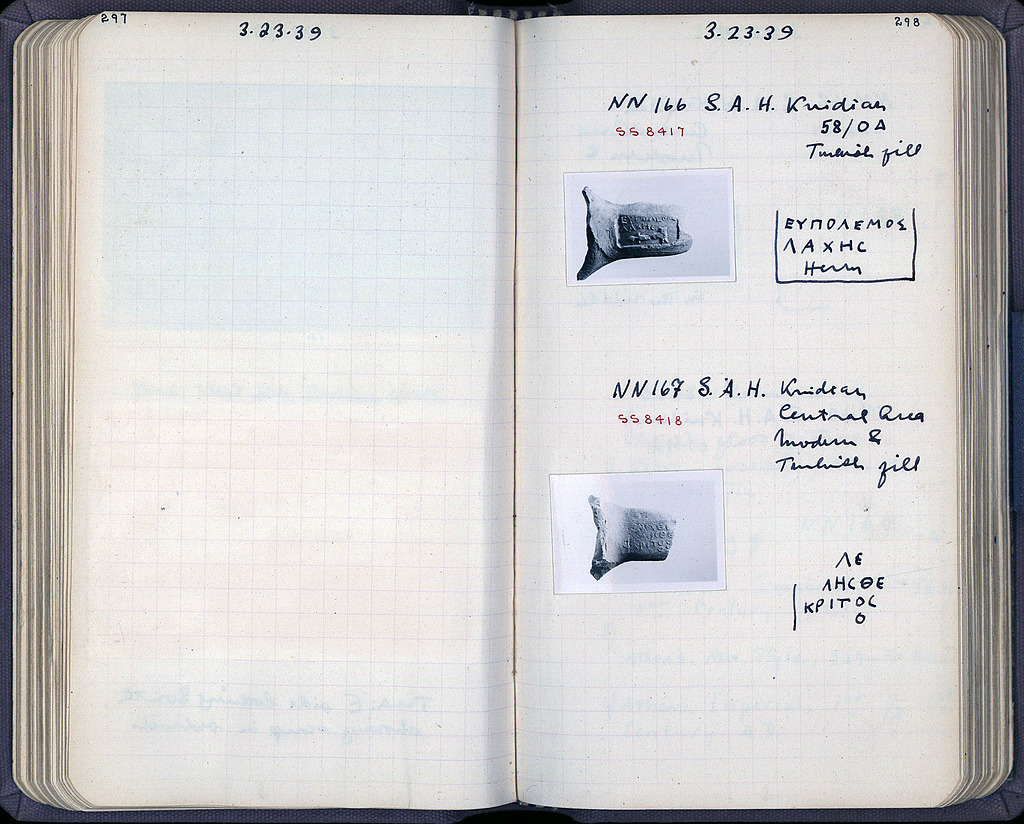 297
3-23-39
3-23-39
298
NN 166 S. A. H. Knidian
SS 8417
58/ΟΔ
Turkish fill
ΕΥΠΟΛΕΜΟΣ
ΛΑΧΗС
Herm
NN 167 S. A. H. Knidian
SS 8418
Central Area
Modern &
Turkish fill
ΛΕ
ΛΗСΘΕ
ΚΡΙΤΟС
Ο